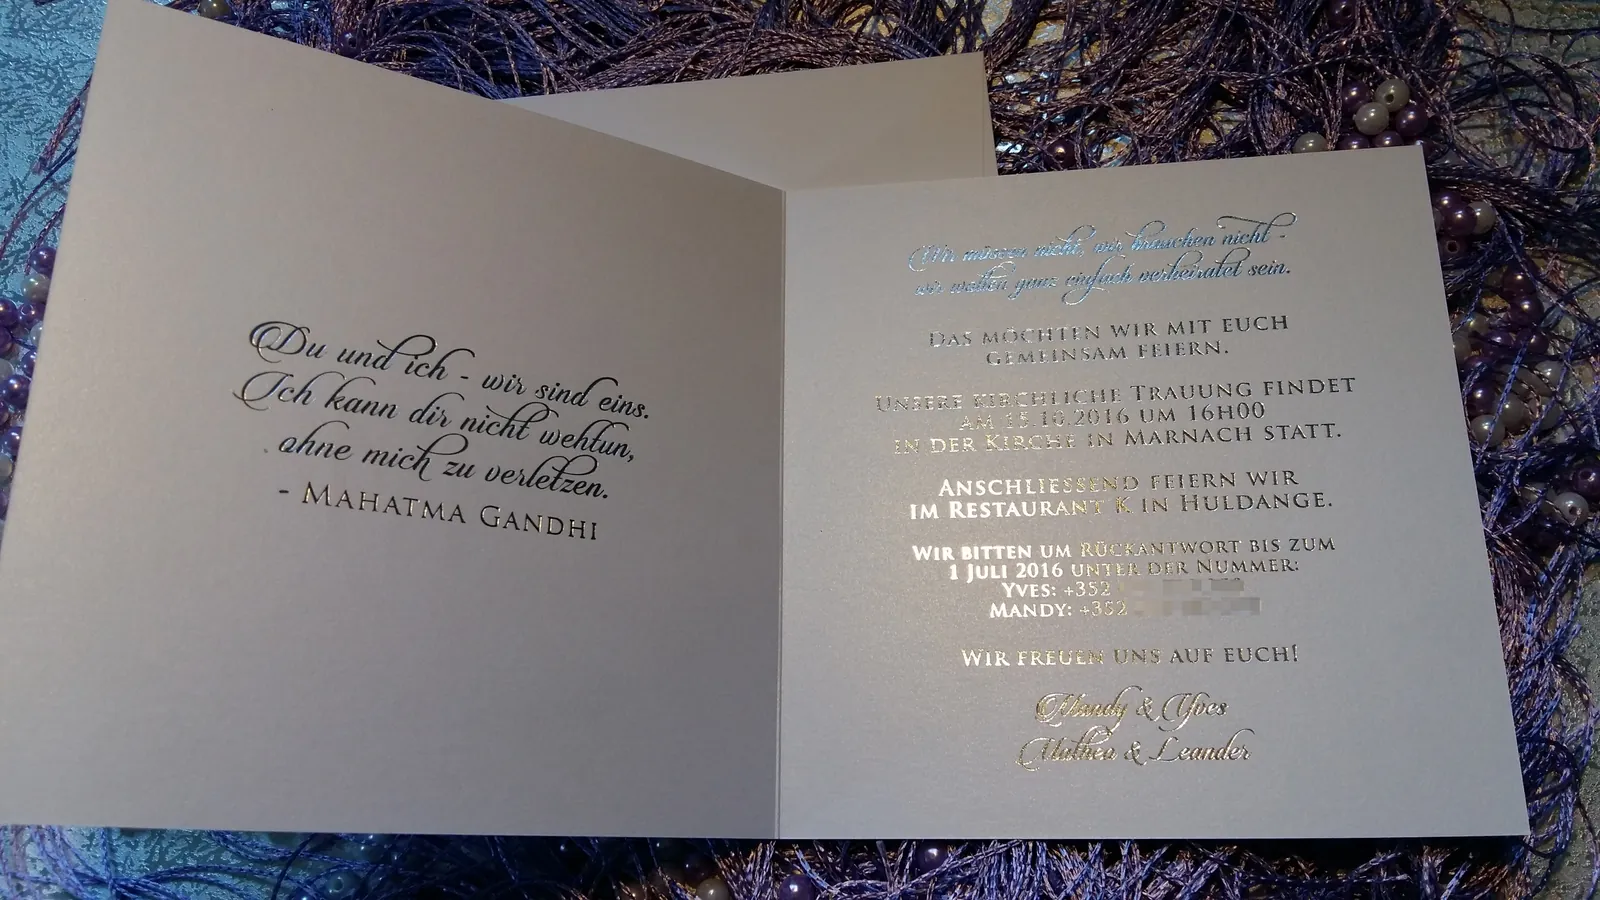 Du und ich - wir sind eins.
Ich kann dir nicht wehtun,
ohne mich zu verletzen.
- Mahatma Gandhi
Wir müssen nicht, wir brauchen nicht -
wir wollen ganz einfach verheiratet sein.
Das möchten wir mit euch
gemeinsam feiern.
Unsere kirchliche Trauung findet
am 15.10.2016 um 16h00
in der Kirche in Marnach statt.
Anschliessend feiern wir
im Restaurant K in Huldange.
Wir bitten um Rückantwort bis zum
1 Juli 2016 unter der Nummer:
Yves: +352
Mandy: +352
Wir freuen uns auf euch!
Mandy & Yves
Mathea & Leander